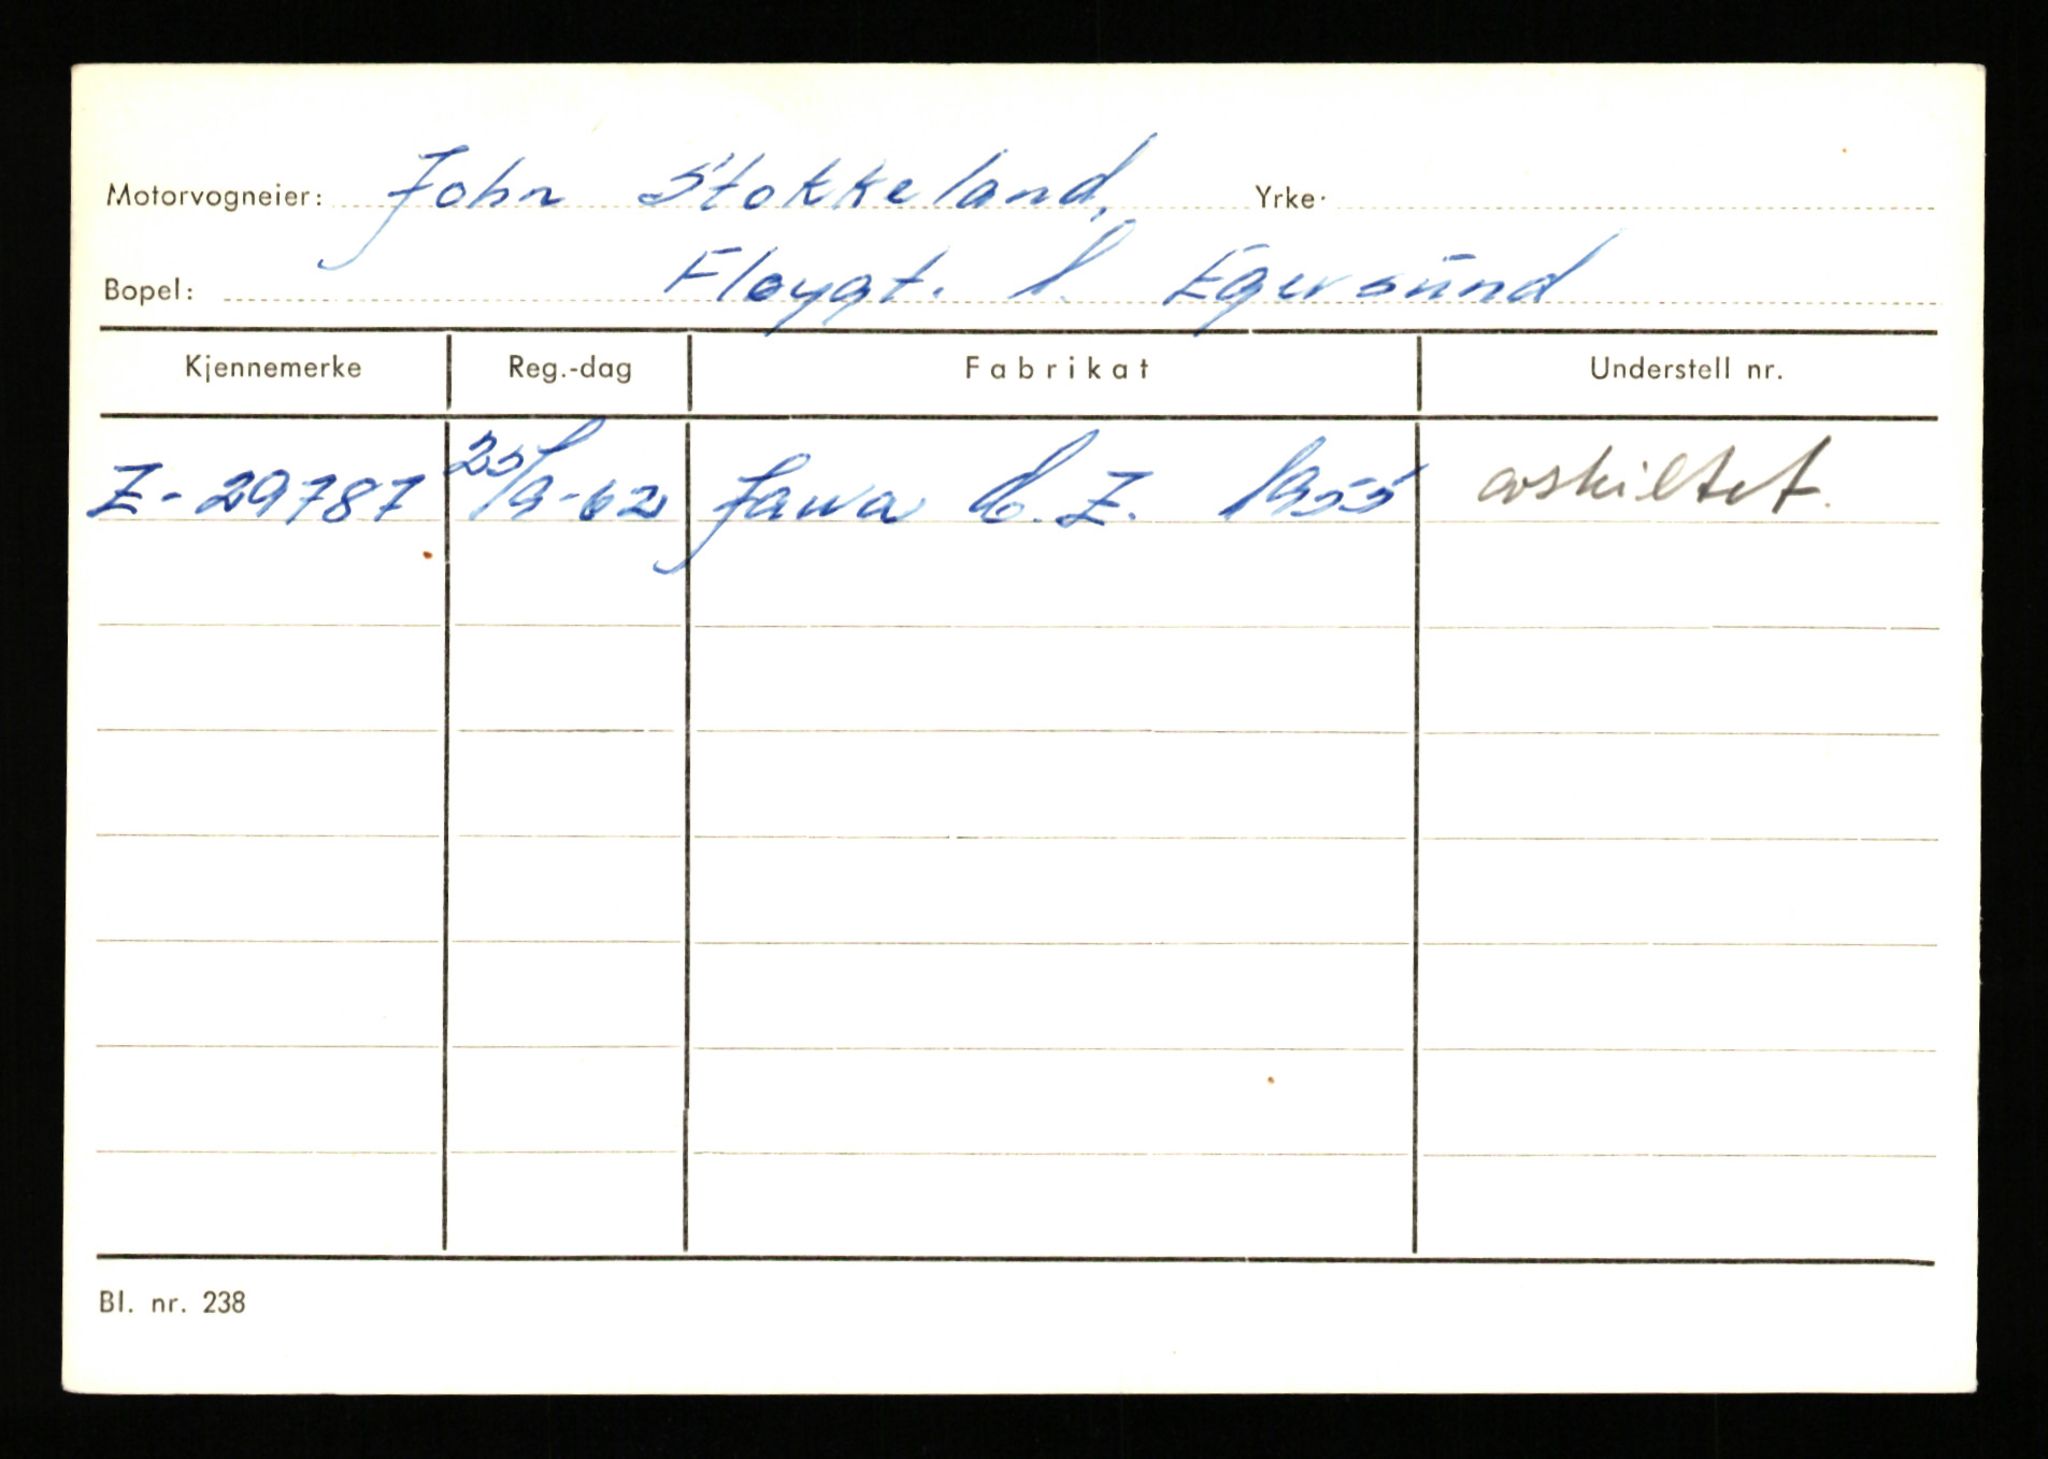 Motorvogneier: John Stokkeland, Yrke
Bopel: Fløygt. 1. Egersund
Kjennemerke Reg.-dag Fabrikat Understell nr.
Z-29787 25/9-62 Jawa C.Z. 1955 avskiltet.
Bl. nr. 238